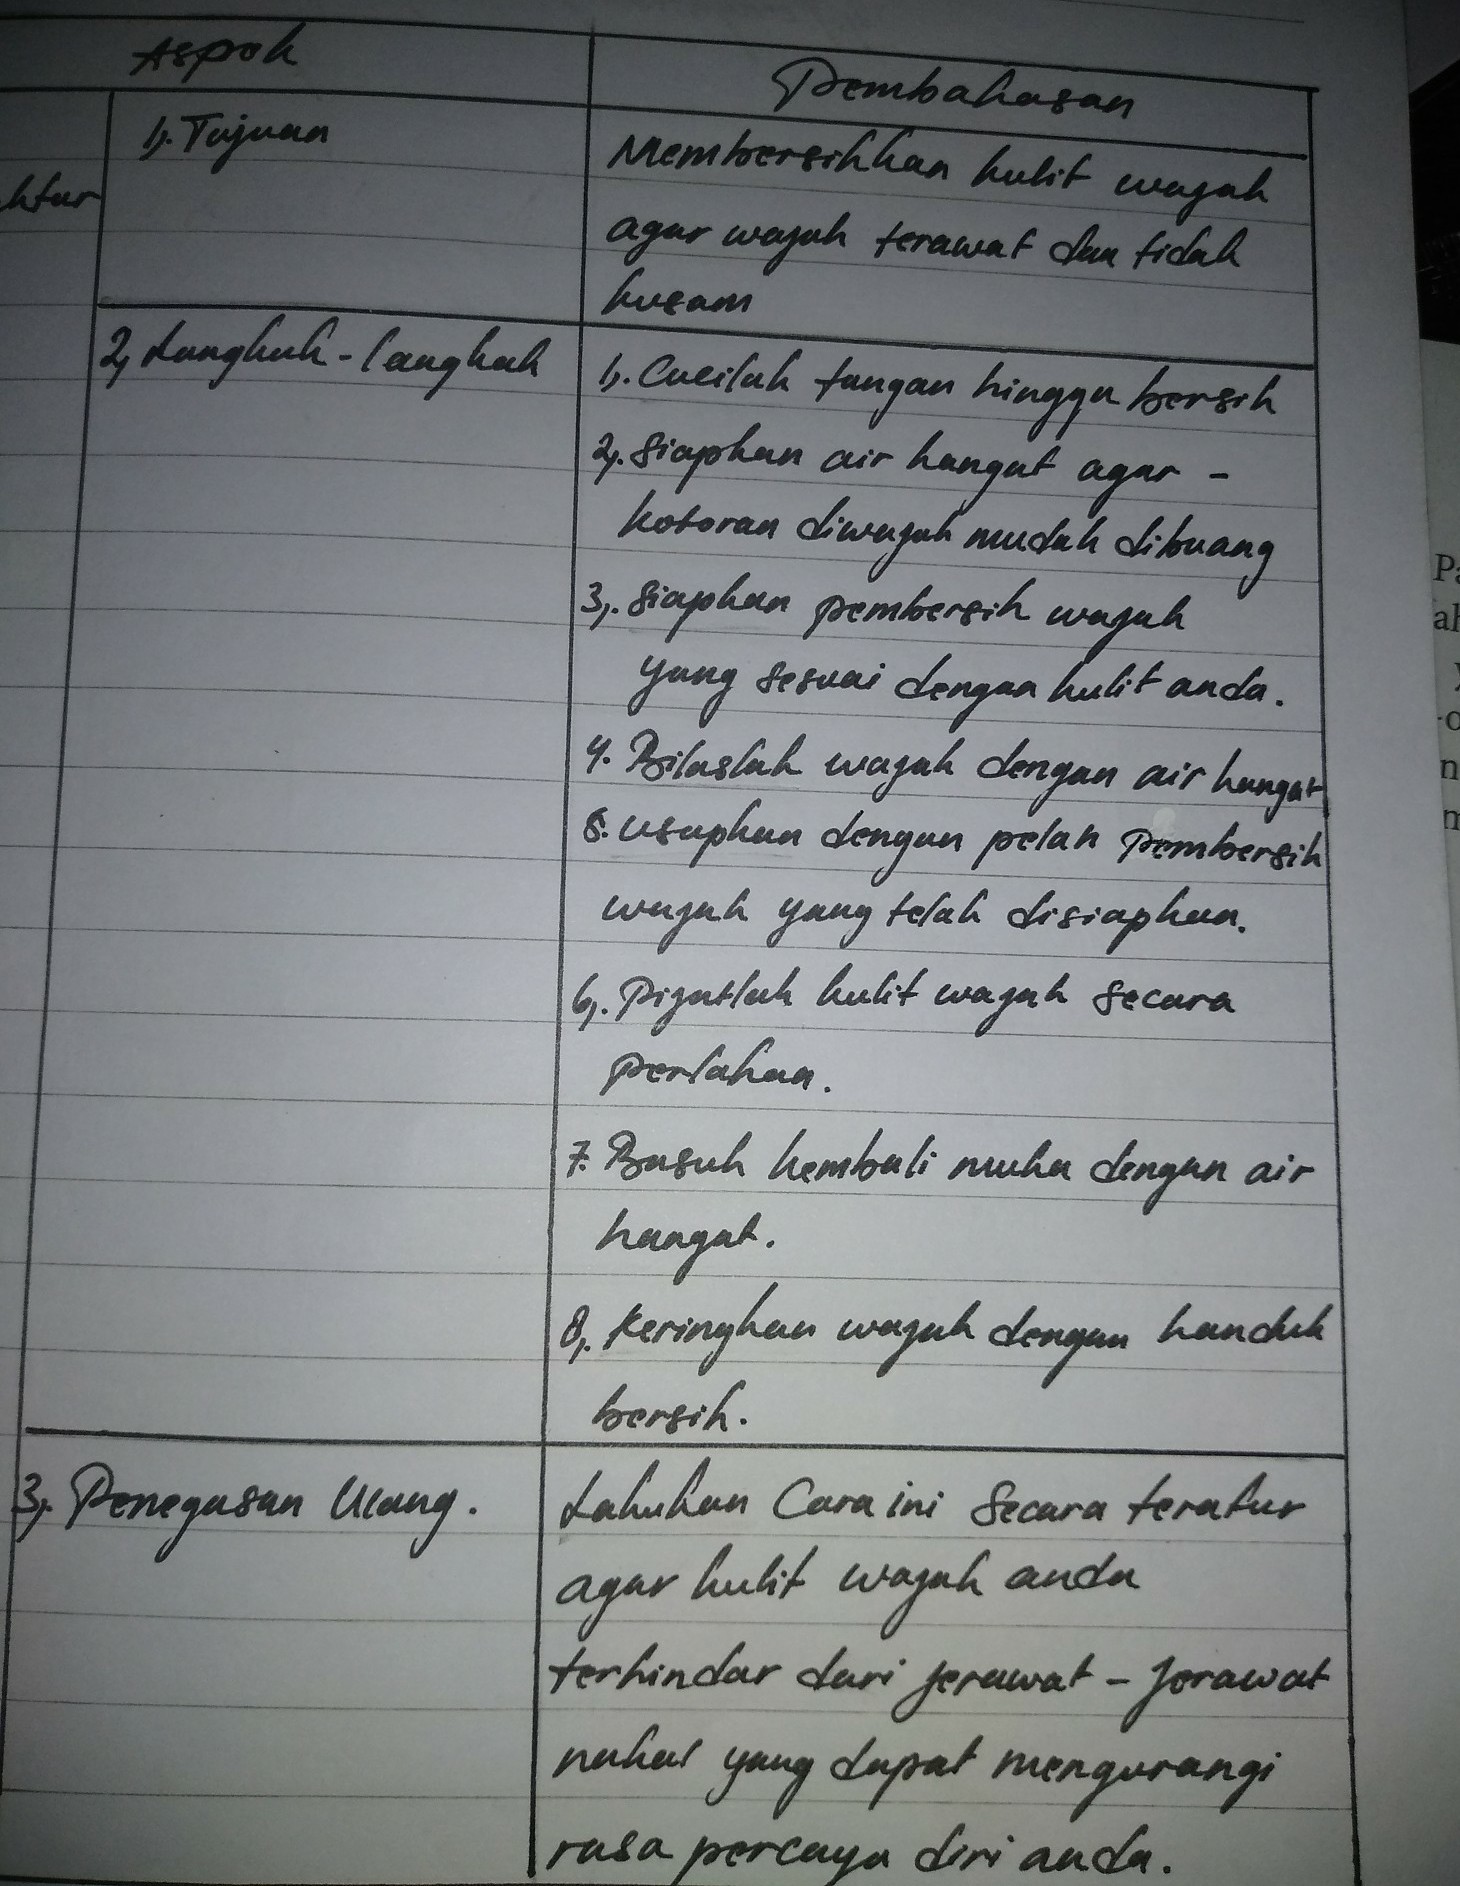 Aspek
Pembahasan
1). Tujuan
Membersihkan kulit wajah
agar wajah terawat dan tidak
kusam
ktur
2, Langkah-langkah
1). Cucilah tangan hingga bersih
2). Siapkan air hangat agar -
kotoran diwajah mudah dibuang
3). Siapkan pembersih wajah
yang sesuai dengan kulit anda.
4. Bilaslah wajah dengan air hangat
5. Usapkan dengan pelan pembersih
wajah yang telah disiapkan.
6). Pijatlah kulit wajah secara
perlahan.
7. Basuh kembali muka dengan air
hangat.
8). Keringkan wajah dengan handuk
bersih.
3). Penegasan Ulang.
Lakukan Cara ini Secara teratur
agar kulit wajah anda
terhindar dari jerawat - jerawat
nakal yang dapat mengurangi
rasa percaya diri anda.